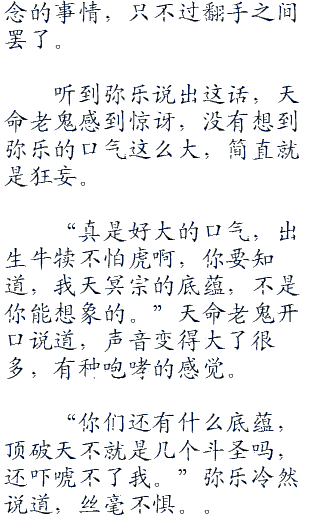 念的事情，只不过翻手之间
罢了。
听到弥乐说出这话，天
命老鬼感到惊讶，没有想到
弥乐的口气这么大，简直就
是狂妄。
“真是好大的口气，出
生牛犊不怕虎啊，你要知
道，我天冥宗的底蕴，不是
你能想象的。”天命老鬼开
口说道，声音变得大了很
多，有种咆哮的感觉。
“你们还有什么底蕴，
顶破天不就是几个斗圣吗，
还吓唬不了我。”弥乐冷然
说道，丝毫不惧。。